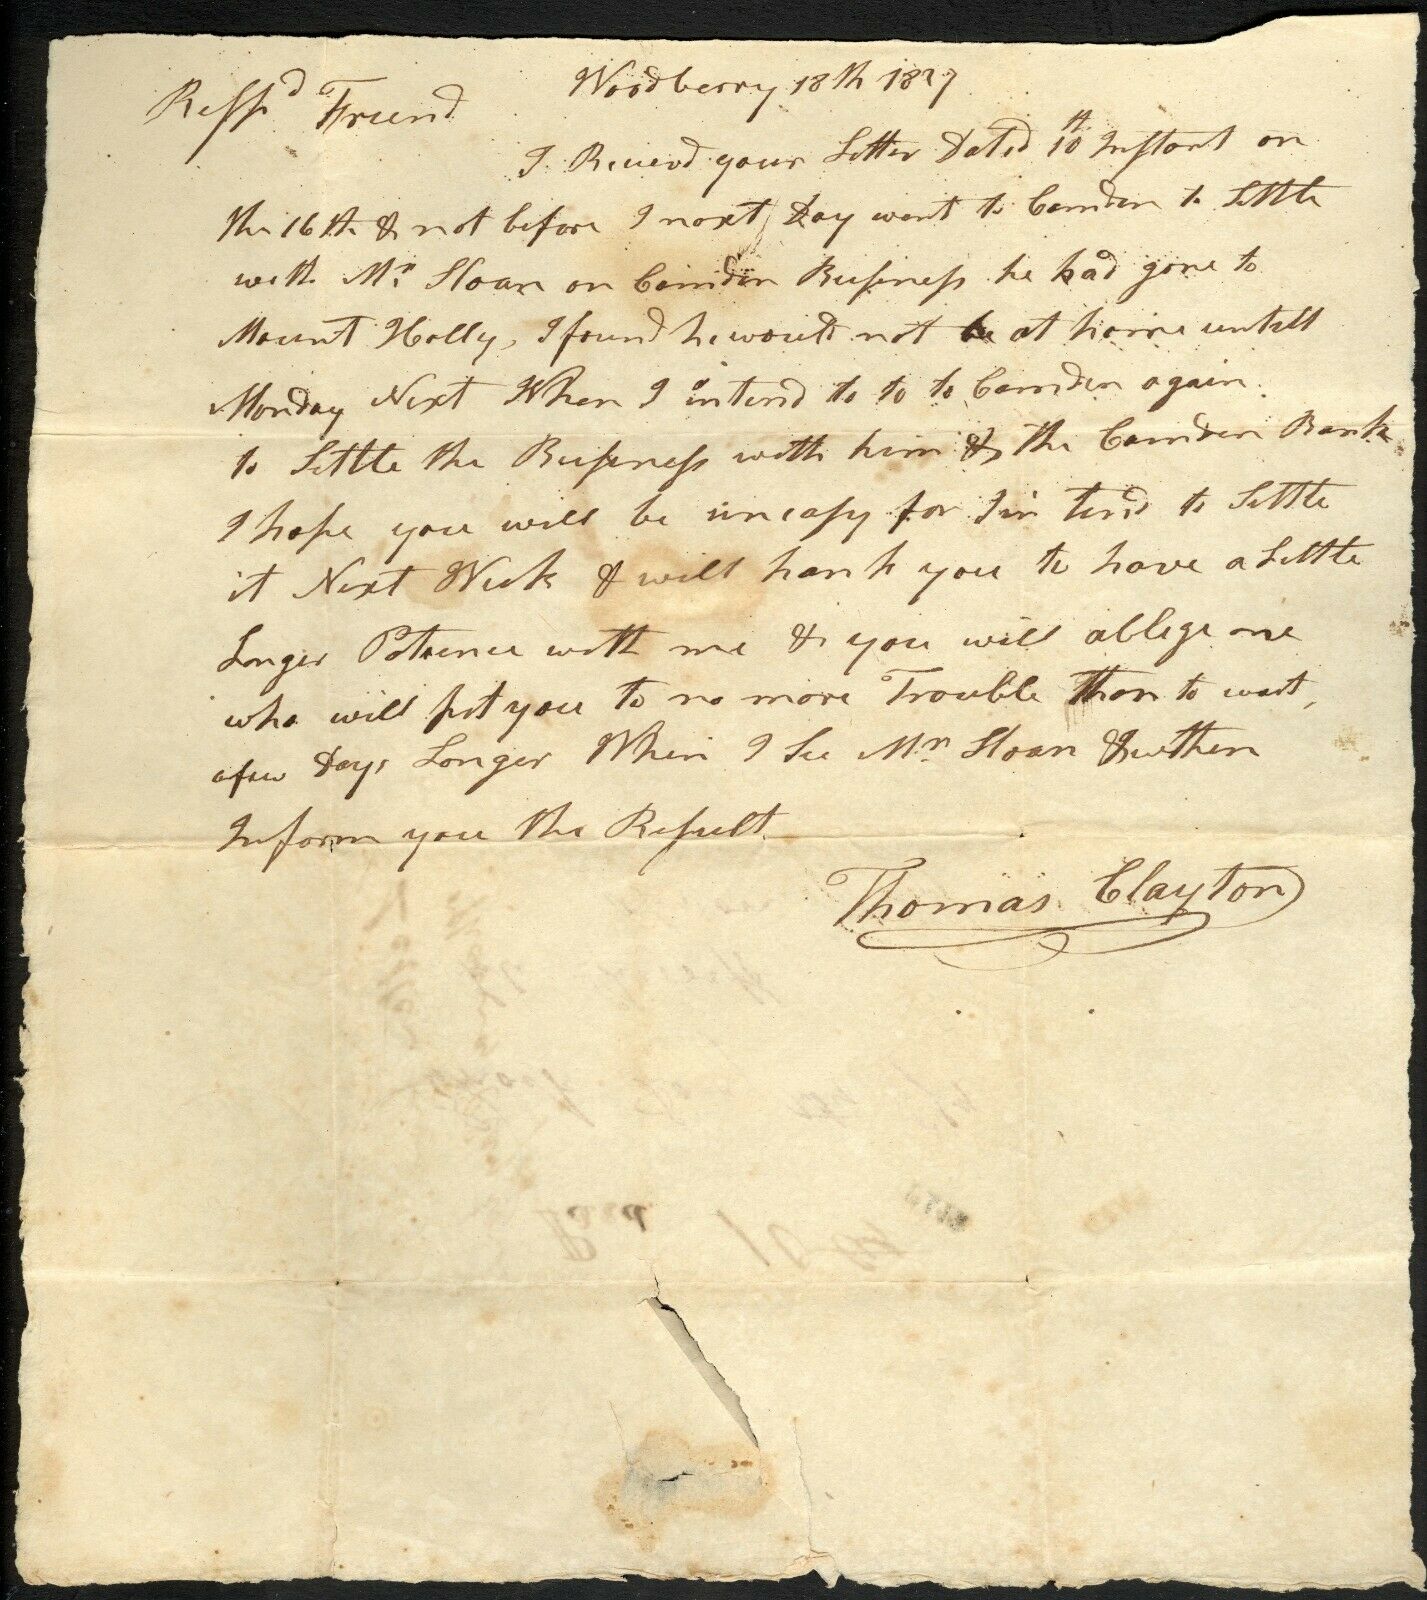 Woodberry 18th 1827
Resp.d Friend
I Receivd your Letter Dated 10th Instant on
the 16th & not before I next Day went to Camden to Settle
with Mr. Sloan on Camden Business he had gone to
Mount Holly, I found he would not be at home untill
Monday Next When I intend to to to Camden again
to Settle the Business with him & the Camden Bank
I hope you will be uneasy for I in tend to Settle
it Next Week & will hank you to have a Little
Longer Patience with me & you will oblige one
who will put you to no more Trouble than to wait,
a few Days Longer When I See Mr. Sloan then
Inform you the Result
Thomas Clayton
Paid